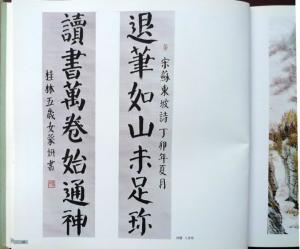 宋蘇東坡詩丁卯年夏月
退筆如山未足珎
讀書萬卷始通神
桂林五歲女蒙妍書